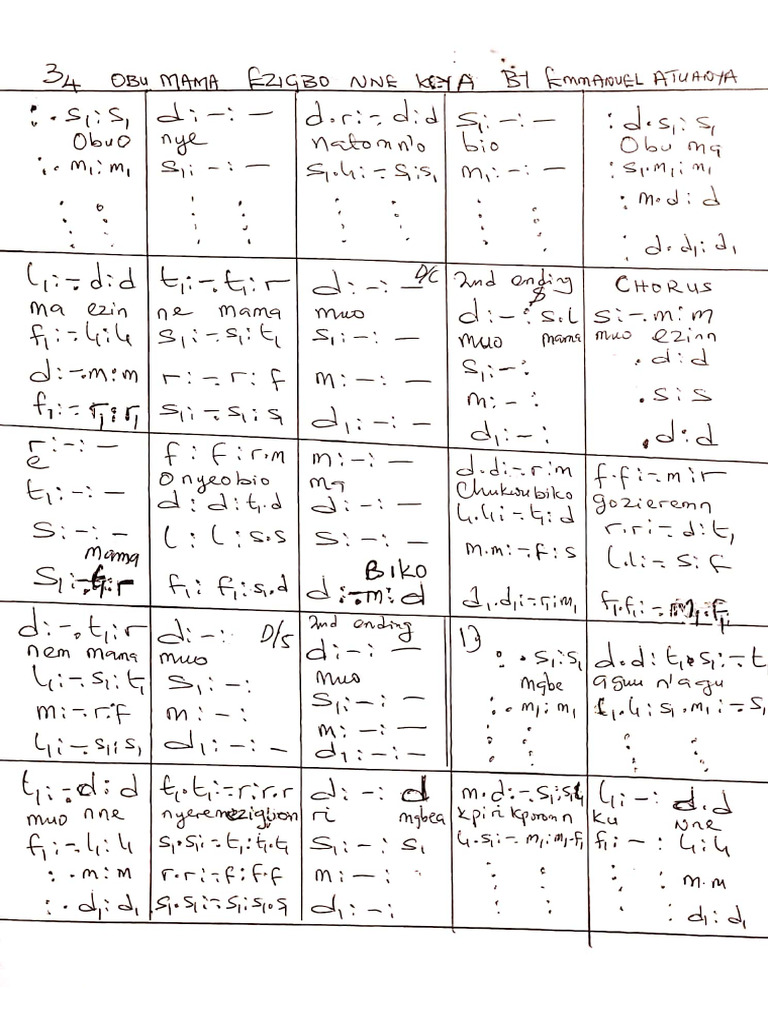 3/4 OBU MAMA EZIGBO NNE KEY A BY EMMANUEL ATUANYA
: . s₁ : s₁ | d : – : – | d . r : – . d : d | s₁ : – : – | : d . s₁ : s₁
Obuo | nye | natomn'o | bio | Obu ma
: . m₁ : m₁ | s₁ : – : – | s₁ . l₁ : – . s₁ : s₁ | m₁ : – : – | : s₁ . m₁ : m₁
: : | : : | : : | : : | : m . d : d
: : | : : | : : | : : | : d . d₁ : d₁
l₁ : – . d : d | t₁ : – . t₁ : r | d : – : – D/C | 2nd ending | CHORUS
ma ezin | ne mama | muo | d : – : s . l | s : – . m : m
f₁ : – . l₁ : l₁ | s₁ : – . s₁ : t₁ | s₁ : – : – | muo mama | muo ezinn
d : – . m : m | r : – . r : f | m : – : – | s₁ : – : | . d : d
f₁ : – . r₁ : r₁ | s₁ : – . s₁ : s₁ | d₁ : – : – | m : – : | . s : s
d₁ : – : | . d : d
r : – : – | f : f : r . m | m : – : – | d . d : – . r : m | f . f : – . m : r
e | Onyeobio | ma | Chukwubiko | gozieremn
t₁ : – : – | d : d : t₁ . d | d : – : – | l₁ . l₁ : – . t₁ : d | r . r : – . d : t₁
s : – : – | l : l : s . s | s : – : – | m . m : – . f : s | l . l : – . s : f
mama | BIKO
s₁ : – . t₁ : r | f₁ : f₁ : s₁ . d | d : – . m : d | d₁ . d₁ : – . r₁ : m₁ | f₁ . f₁ : – . m₁ : f₁
d : – . t₁ : r | d : – : D/S | 2nd ending | 1) : . s₁ : s₁ | d . d : t₁ . s₁ : – . t₁
nem mama | muo | d : – : – | mgbe | aguu n'agu
l₁ : – . s₁ : t₁ | s₁ : – : | muo | : . m₁ : m₁ | f₁ . l₁ : s₁ . m₁ : – . s₁
m : – . r . f | m : – : | s₁ : – : – | : : | : :
l₁ : – . s₁ : s₁ | d₁ : – : – | m : – : – | : : | : :
d₁ : – : –
t₁ : – . d : d | t₁ . t₁ : – . r : r . r | d : – : d | m . d : – . s₁ : s₁ . l₁ | l₁ : – : d . d
muo nne | nyeremezigbon | ri mgbea | kpiri kporomn | ku Nne
f₁ : – . l₁ : l₁ | s₁ . s₁ : – . t₁ : t₁ . t₁ | s₁ : – : s₁ | l₁ . s₁ : – . m₁ : m₁ . f₁ | f₁ : – : l₁ : l₁
: . m : m | r . r : – . f : f . f | m : – : | : : | : : m . m
: . d₁ : d₁ | s₁ . s₁ : – . s₁ : s₁ . s₁ | d₁ : – : | : : | : : d₁ : d₁